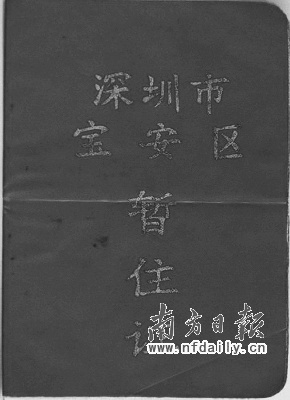 深圳市
宝安区
暂
住
证
南方日报
www.nfdaily.cn